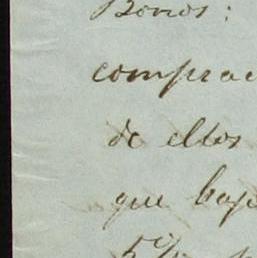 Bonos:
comprac
de ellos
que baje
5%